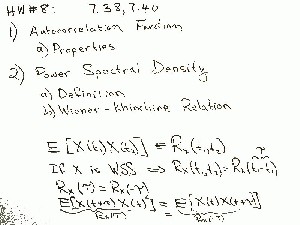 HW #8: 7.38, 7.40
1) Autocorrelation Function
a) Properties
2) Power Spectral Density
a) Definition
b) Wiener-Khinchine Relation
E[X(t₁)X(t₂)] = Rx(t₁,t₂)
If X is WSS ⇒ Rx(t₁,t₂) = Rx(t₁-t₂) τ
Rx(τ) = Rx(-τ)
E[X(t+τ)X(t)] = E[X(t)X(t+τ)]
Rx(τ) = Rx(-τ)